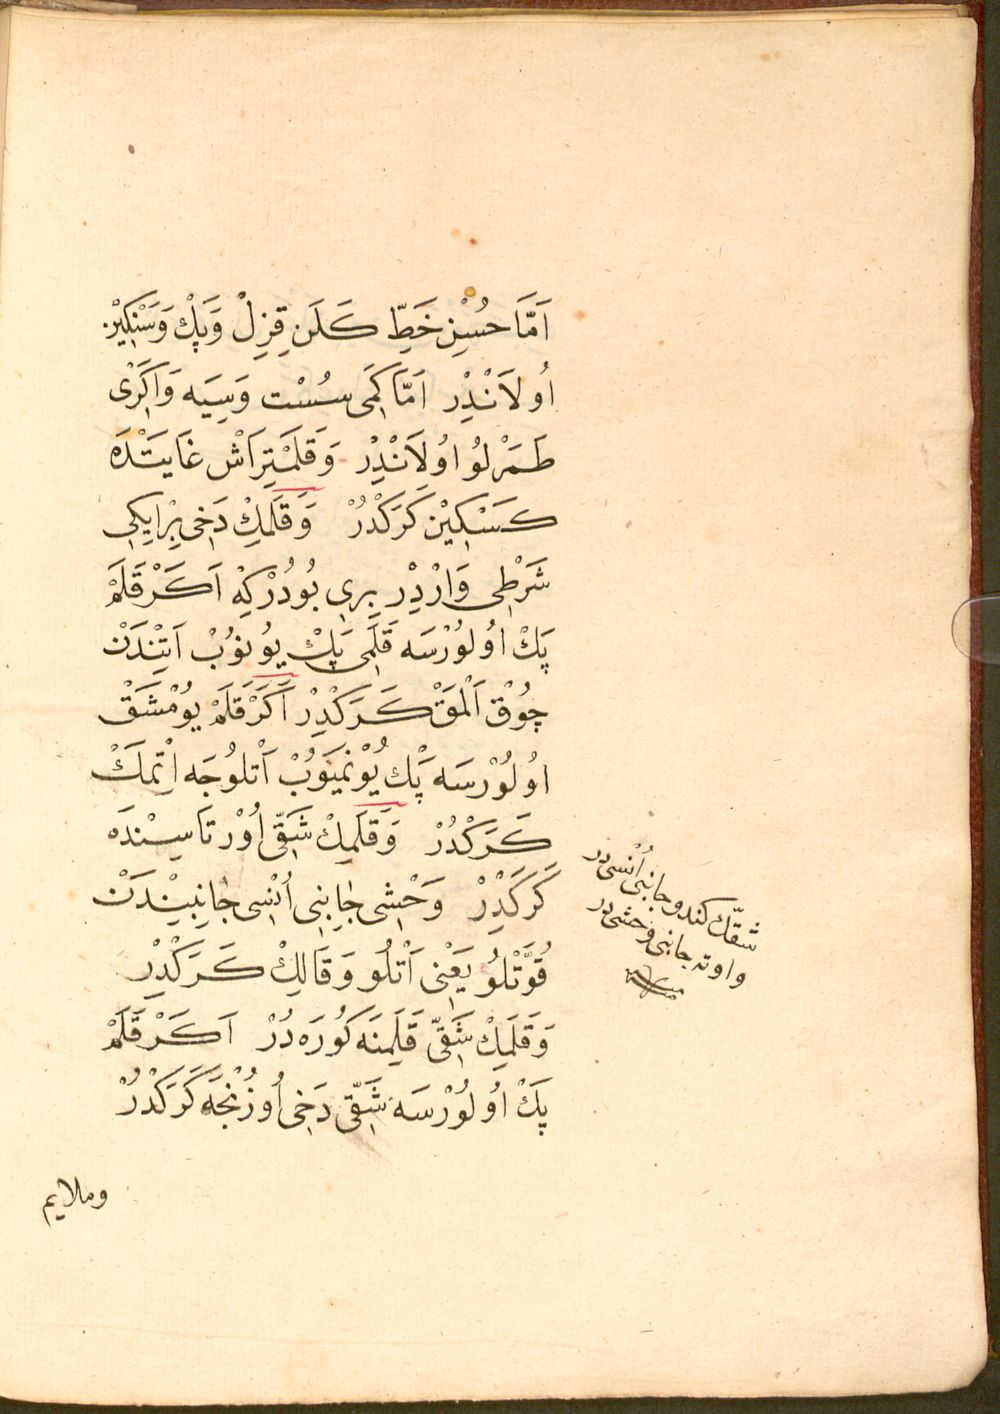 اَمَّا حُسْنِ خَطِّ كَلَنِ قِزِلْ وَپَكْ وَسَنْكِينْ
اُولَانْدِرْ اَمَّا كَمِى سُسْت وَسِيَه وَاَكْرِى
طَمَرْلُو اُولَانْدِرْ وَقَلَمْتِرَاشْ غَايَتْدَه
كَسْكِيْن كَرَكْدُرْ وَقَلَمِكْ دَخِى بِرْ اِيكِى
شَرْطِى وَارْدِرْ بِرِى بُودُرْ كِه اَكَرْ قَلَمْ
پَكْ اُولُورْسَه قَلَمِى پَكْ يُونُوبْ اَتِنْدَنْ
چُوْق اَلْمَقْ كَرَكْدِرْ اَكَرْ قَلَمْ يُومْشَقْ
اُولُورْسَه پَكْ يُوْنْمَيُوبْ اَتْلُوجَه اِتْمَكْ
كَرَكْدُرْ وَقَلَمِكْ شَقِّى اُوْرتَاسِنْدَه
كَرَكْدِرْ وَحْشِى جَانِبِى اُنْسِى جَانِبِيْنْدَنْ
قُوَّتْلُو يَعْنِى اَتْلُو وَقَالِكْ كَرَكْدِرْ
وَقَلَمِكْ شَقِّى قَلَمِنَه كُورَه دُرْ اَكَرْ قَلَمْ
پَكْ اُولُورْسَه شَقِّى دَخِى اُوزُنْجَه كَرَكْدُرْ
شقّك كندو جانبى اُنْسى در
واوته جانبى وحشى در
وملايم